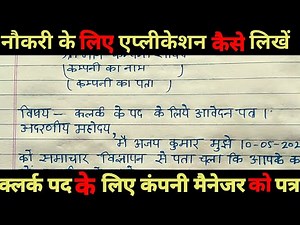 नौकरी के लिए एप्लीकेशन कैसे लिखें
(कम्पनी का नाम)
(कम्पनी का पता)
विषय - कलर्क के पद के लिये आवेदन पत्र ।
अदरणीय महोदय,
मैं अजय कुमार मुझे 10-05-202
को समाचार विज्ञापन से पता चला कि आपके क
क्लर्क पद के लिए कंपनी मैनेजर को पत्र